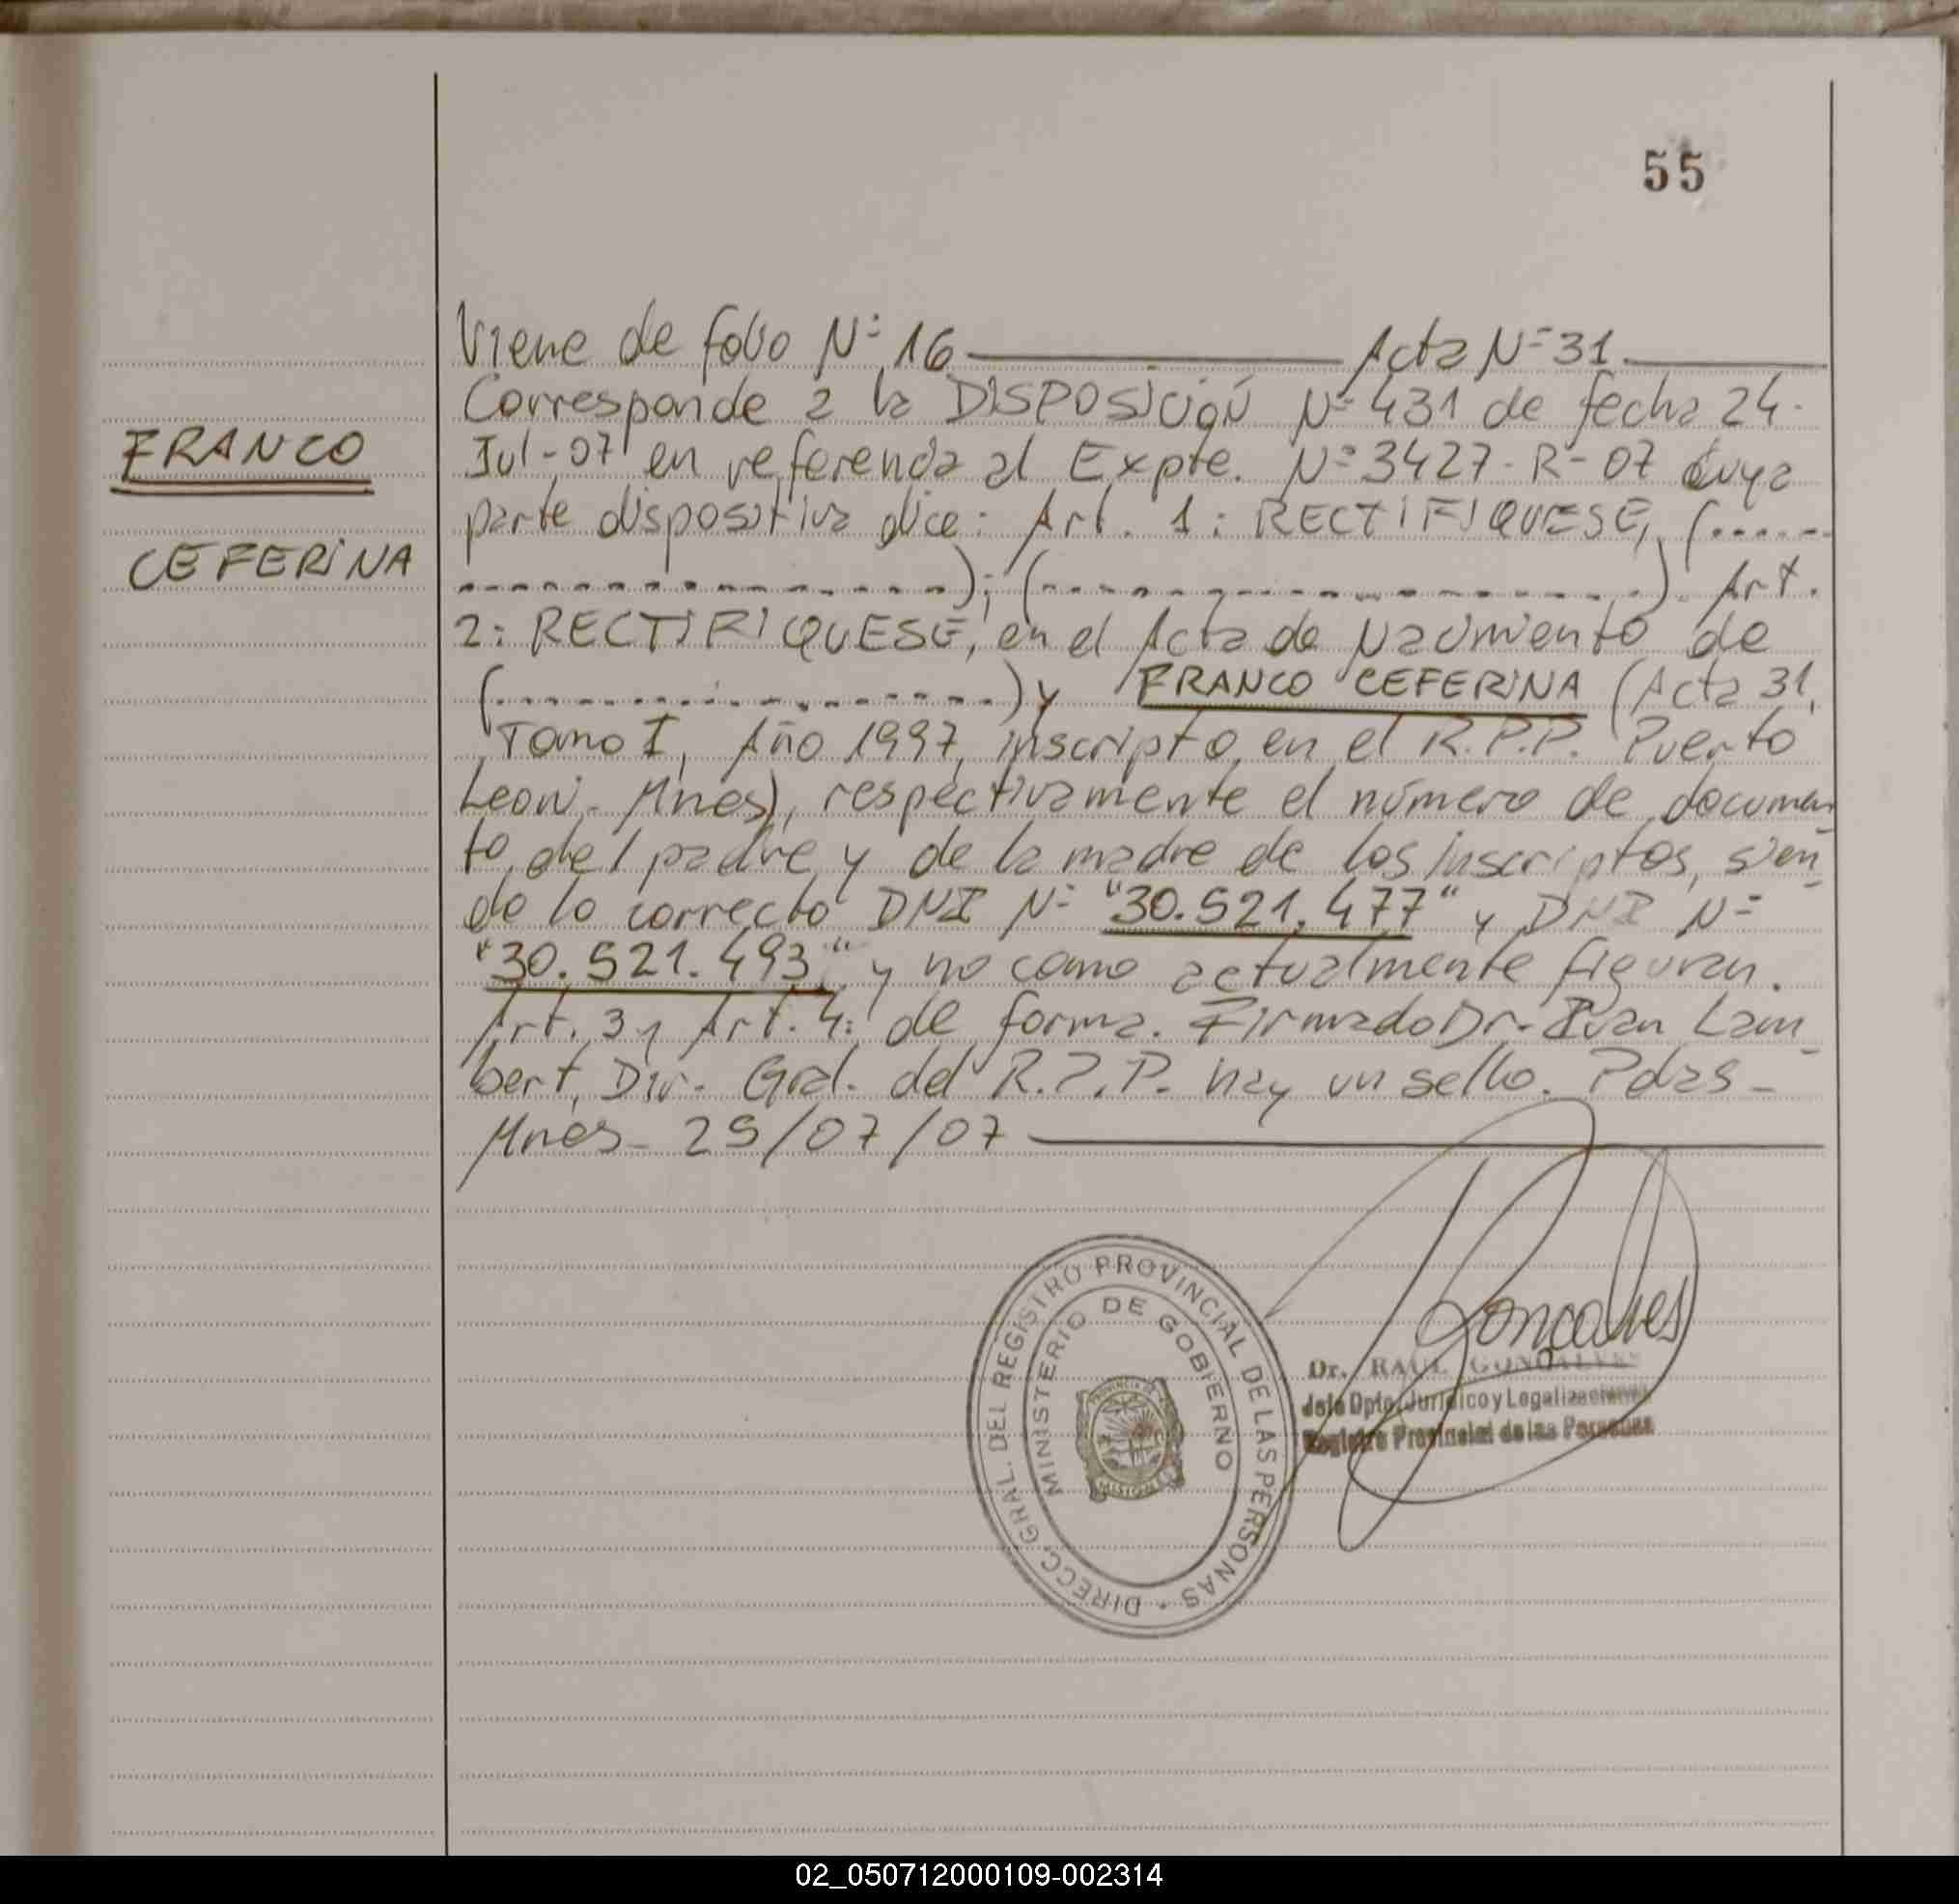 55
Viene de folio Nº 16 ———— Acta Nº 31.
Corresponde a la DISPOSICIÓN Nº 431 de fecha 24-
FRANCO
Jul-07 en referencia al Expte. Nº 3427-R-07 cuya
parte dispositiva dice: Art. 1: RECTIFIQUESE, (......
CEFERINA
..................); (......................). Art.
2: RECTIFIQUESE, en el Acta de Nacimiento de
(...................) y FRANCO CEFERINA (Acta 31,
Tomo I, Año 1997, inscripto en el R.P.P. Puerto
Leoni - Mnes), respectivamente el número de documen
to del padre y de la madre de los inscriptos, sien
do lo correcto DNI Nº "30.521.477" y DNI Nº
"30.521.493" y no como actualmente figuran.
Art. 3 y Art. 4: de forma. Firmado Dr. Ivan Lam
bert, Dir. Gral. del R.P.P. hay un sello. Pdas -
Mnes - 25/07/07
DIRECC. GRAL. DEL REGISTRO PROVINCIAL DE LAS PERSONAS •
MINISTERIO DE GOBIERNO
PROVINCIA DE
MISIONES
Goncalves
Dr. RAUL GONCALVES
Jefe Dpto. Jurídico y Legalizaciones
Registro Provincial de las Personas
02_050712000109-002314